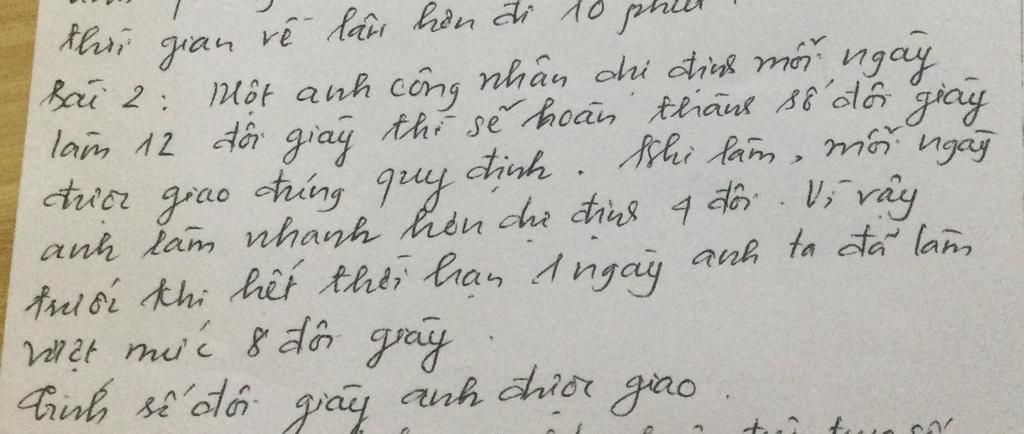 thời gian về lâu hơn đi 10 phút
Bài 2: Một anh công nhân dự định mỗi ngày
làm 12 đôi giày thì sẽ hoàn thành số đôi giày
được giao đúng quy định. Khi làm, mỗi ngày
anh làm nhanh hơn dự định 4 đôi. Vì vậy
trước khi hết thời hạn 1 ngày anh ta đã làm
vượt mức 8 đôi giày.
Tính số đôi giày anh được giao.